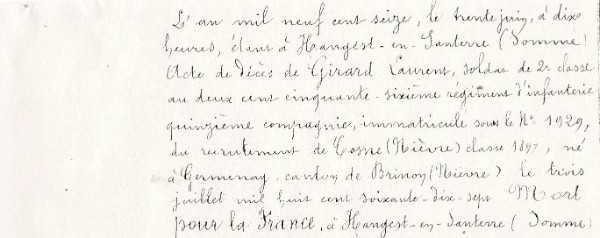 L'an mil neuf cent seize, le trente juin, à dix
heures, étant à Hangest-en-Santerre (Somme)
Acte de décès de Girard Laurent, soldat de 2e classe
au deux cent cinquante-sixième régiment d'infanterie
quinzième compagnie, immatriculé sous le No 1929,
du recrutement de Cosne (Nièvre) classe 1897, né
à Germenay, canton de Brinon (Nièvre) le trois
juillet mil huit cent soixante-dix-sept Mort
pour la France, à Hangest-en-Santerre (Somme)